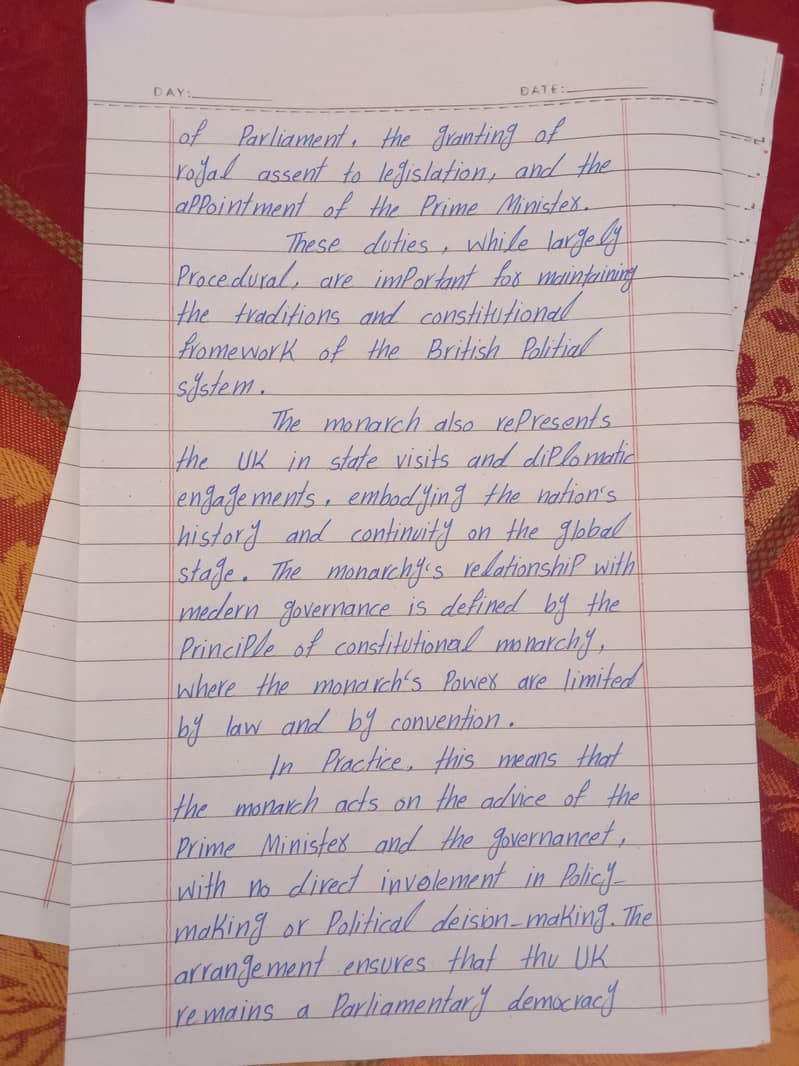 DAY: DATE:
of Parliament, the granting of
royal assent to legislation, and the
appointment of the Prime Minister.
These duties, while largely
Procedural, are important for maintaining
the traditions and constitutional
fromework of the British Politial
system.
The monarch also represents
the UK in state visits and diplomatic
engagements, embodying the nation's
history and continuity on the global
stage. The monarchy's relationship with
medern governance is defined by the
Principle of constitutional monarchy,
where the monarch's Power are limited
by law and by convention.
In Practice, this means that
the monarch acts on the advice of the
Prime Minister and the governancet,
with no direct involement in Policy-
making or Political deision-making. The
arrangement ensures that thu UK
remains a Parliamentary democracy